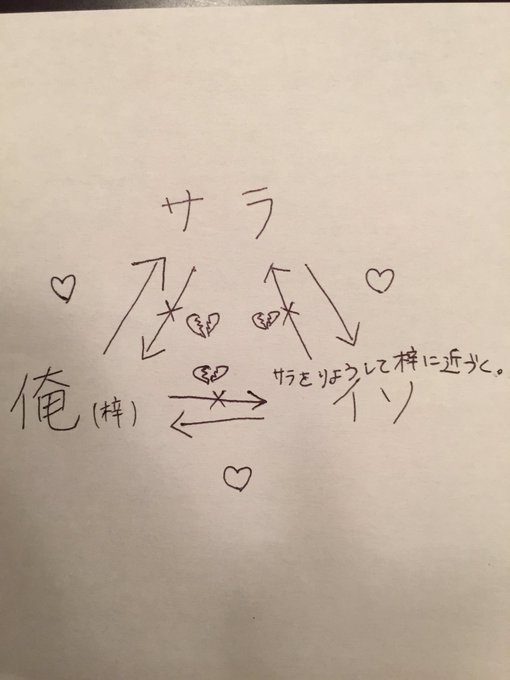 サラ
サラをりようして梓に近づく。
俺(梓)
イソ